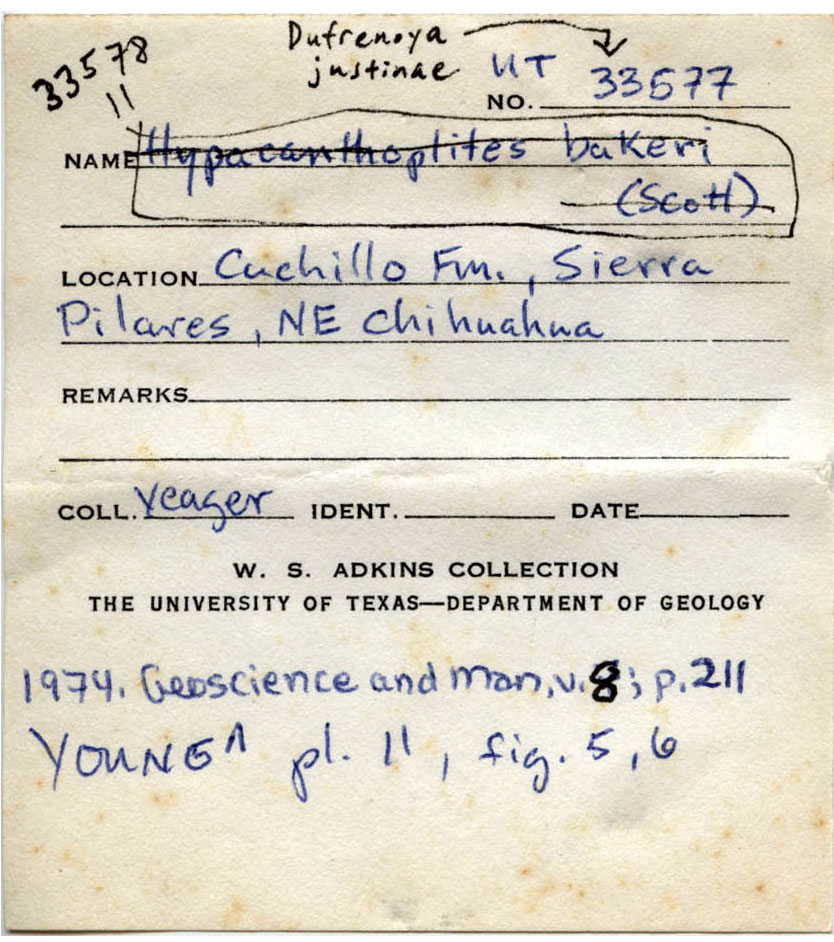 Dufrenoya
justinae
33578
"
UT
NO. 33577
NAME Hypacanthoplites bakeri
(Scott)
LOCATION Cuchillo Fm., Sierra
Pilares, NE Chihuahua
REMARKS
COLL. Yeager IDENT. DATE
W. S. ADKINS COLLECTION
THE UNIVERSITY OF TEXAS—DEPARTMENT OF GEOLOGY
1974. Geoscience and Man, v. 8; p. 211
YOUNG ^ pl. 11, fig. 5, 6